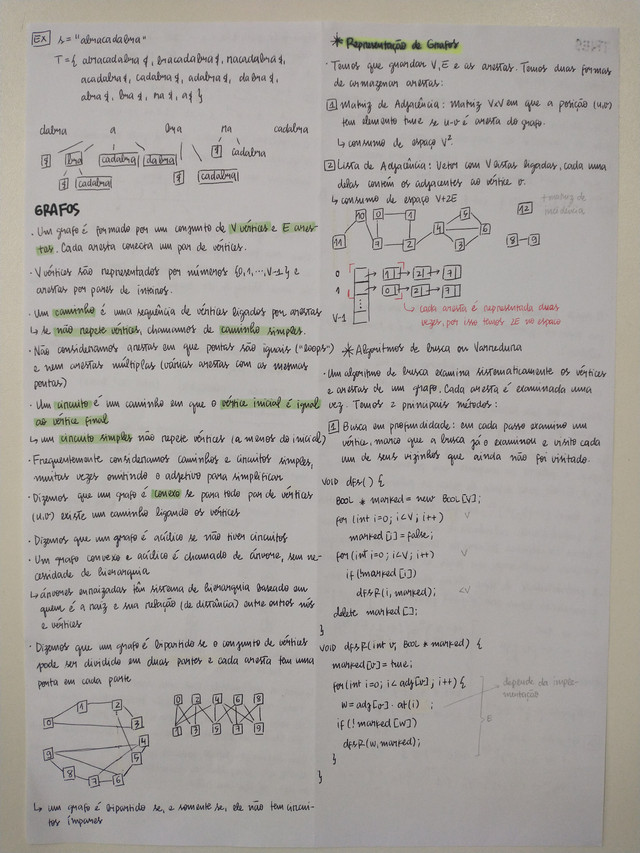 EX s = "abracadabra"
T = { abracadabra $, bracadabra $, racadabra $,
acadabra $, cadabra $, adabra $, dabra $,
abra $, bra $, ra $, a $ }
dabra a bra ra cadabra
$ bra cadabra dabra $ cadabra
$ cadabra $ cadabra
GRAFOS
· Um grafo é formado por um conjunto de V vértices e E ares-
tas. Cada aresta conecta um par de vértices.
· V vértices são representados por números {0,1,...,V-1} e
arestas por pares de inteiros.
· Um caminho é uma sequência de vértices ligados por arestas
↳ se não repete vértices, chamamos de caminho simples.
· Não consideramos arestas em que pontas são iguais ("loops")
e nem arestas múltiplas (várias arestas com as mesmas
pontas)
· Um circuito é um caminho em que o vértice inicial é igual
ao vértice final
↳ um circuito simples não repete vértices (a menos do inicial)
· Frequentemente consideramos caminhos e circuitos simples,
muitas vezes omitindo o adjetivo para simplificar
· Dizemos que um grafo é conexo se para todo par de vértices
(u,v) existe um caminho ligando os vértices
· Dizemos que um grafo é acíclico se não tiver circuitos
· Um grafo convexo e acíclico é chamado de árvore, sem ne-
cessidade de hierarquia
↳ árvores enraizadas têm sistema de hierarquia baseado em
quem é a raiz e sua relação (de distância) entre outros nós
e vértices
· Dizemos que um grafo é bipartido se o conjunto de vértices
pode ser dividido em duas partes e cada aresta tem uma
ponta em cada parte
0 1 2 3 4 5 6 7 8 9
0 2 4 6 8
1 3 5 7 9
↳ um grafo é bipartido se, e somente se, ele não tem circui-
tos ímpares
* Representação de Grafos
· Temos que guardar V, E e as arestas. Temos duas formas
de armazenar arestas:
1 Matriz de Adjacência: Matriz VxV em que a posição (u,v)
tem elemento true se u-v é aresta do grafo.
↳ consumo de espaço V².
2 Lista de Adjacência: Vetor com V listas ligadas, cada uma
delas contém os adjacentes ao vértice v.
↳ consumo de espaço V+2E
+ matriz de
incidência
10 0 1 5 12
11 7 2 4 6 3 8 - 9
0 → 1 → 2 → 7
1 → 0 → 2 → 7
⋮
V-1
↳ cada aresta é representada duas
vezes, por isso temos 2E no espaço
* Algoritmos de busca ou Varredura
· Um algoritmo de busca examina sistematicamente os vértices
e arestas de um grafo. Cada aresta é examinada uma
vez. Temos 2 principais métodos:
1 Busca em profundidade: em cada passo examino um
vértice, marco que a busca já o examinou e visito cada
um de seus vizinhos que ainda não foi visitado.
void dfs() {
Bool * marked = new Bool[V];
for (int i=0; i<V; i++) V
marked[i] = false;
for (int i=0; i<V; i++) V
if (!marked[i])
dfsR(i, marked); <V
delete marked[];
}
void dfsR(int v, Bool * marked) {
marked[v] = true;
for(int i=0; i< adj[v]; i++) {
w = adj[v].at(i) ;
depende da imple-
mentação
if (! marked[w])
dfsR(w, marked);
E
}
}